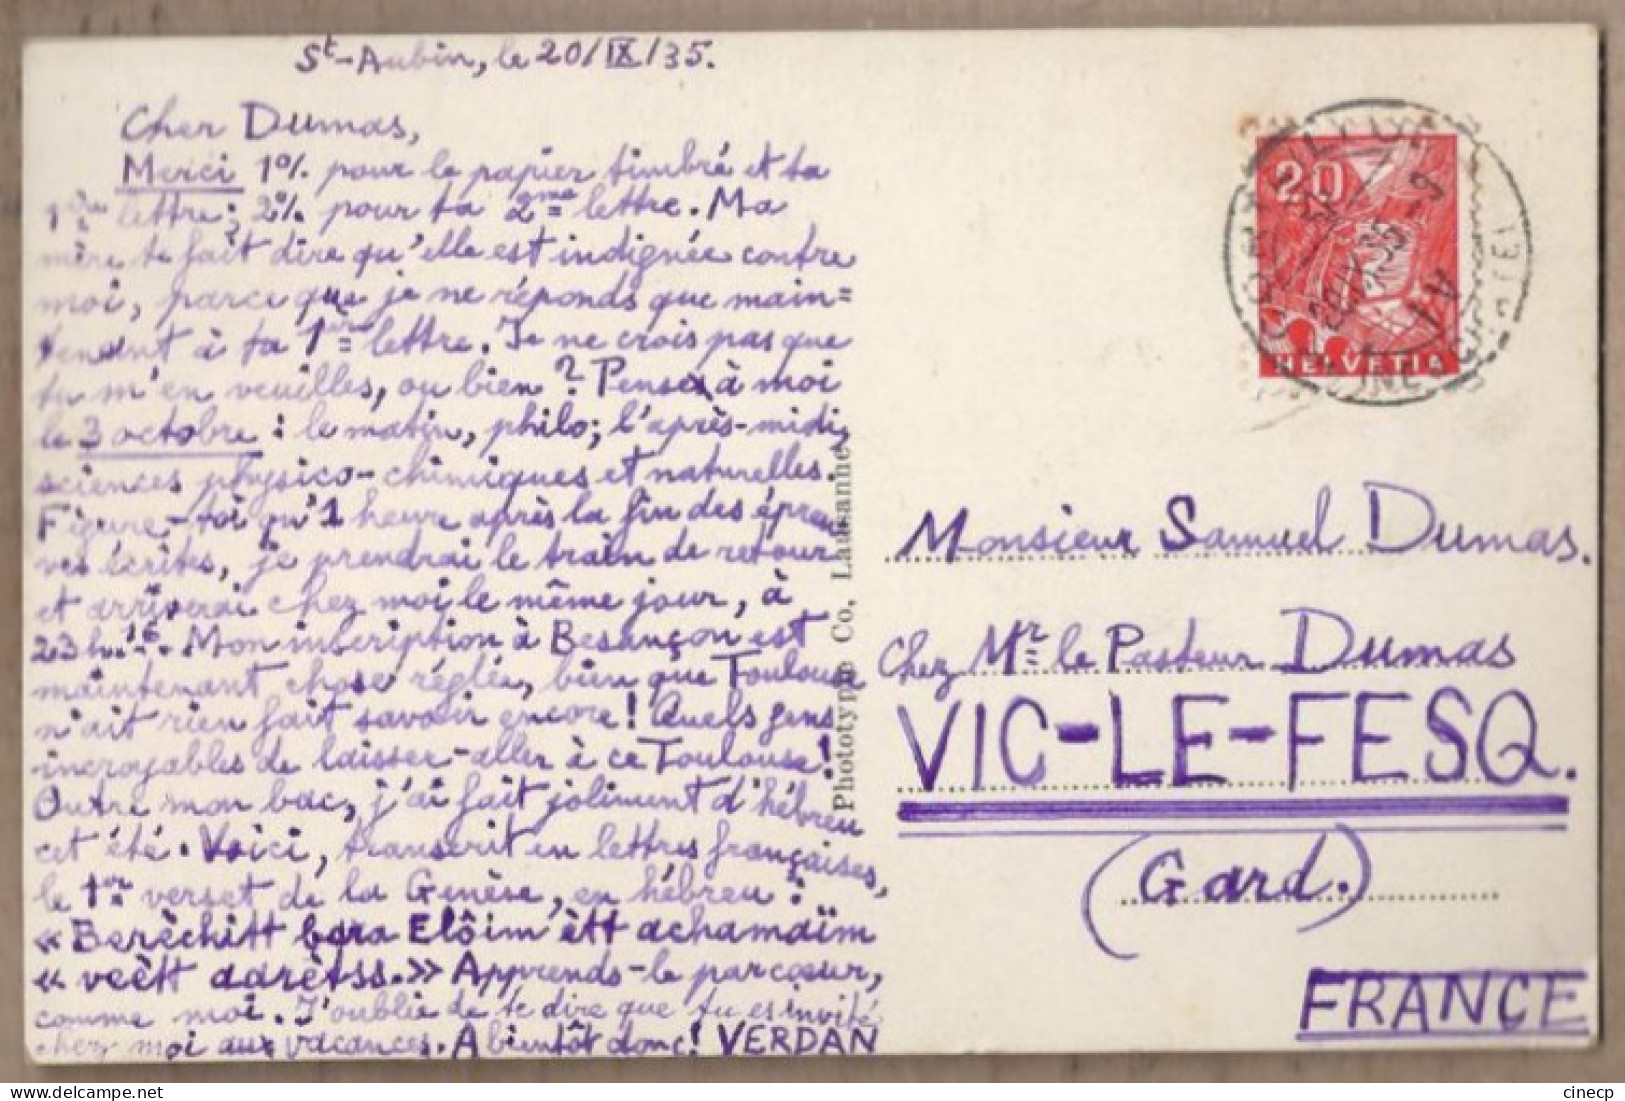 St-Aubin, le 20/IX/35.
Cher Dumas,
Merci 1°/. pour le papier timbré et ta
1ère lettre; 2°/. pour ta 2me lettre. Ma
mère te fait dire qu'elle est indignée contre
moi, parce que je ne réponds que main=
tenant à ta 1ère lettre. Je ne crois pas que
tu m'en veuilles, ou bien? Pense à moi
le 3 octobre: le matin, philo; l'après-midi,
sciences physico-chimiques et naturelles.
Figure-toi qu'1 heure après la fin des épreu
ves écrites, je prendrai le train de retour
et arriverai chez moi le même jour, à
23h.16. Mon inscription à Besançon est
maintenant chose réglée, bien que Toulouse
n'ait rien fait savoir encore! Quels gens
incroyables de laisser-aller à ce Toulouse!
Outre mon bac, j'ai fait joliment d'hébreu
cet été. Voici, transcrit en lettres françaises,
le 1er verset de la Genèse, en hébreu:
« Berèchitt bara Elôim ètt achamaïm
« veètt aarètss.» Apprends-le par cœur,
comme moi. J'oublie de te dire que tu es invité
chez moi aux vacances. A bientôt donc! VERDAN
Phototypie Co., Lausanne
20
HELVETIA
Monsieur Samuel Dumas.
Chez Mr le Pasteur Dumas
VIC-LE-FESQ.
(Gard.)
FRANCE
cinecp